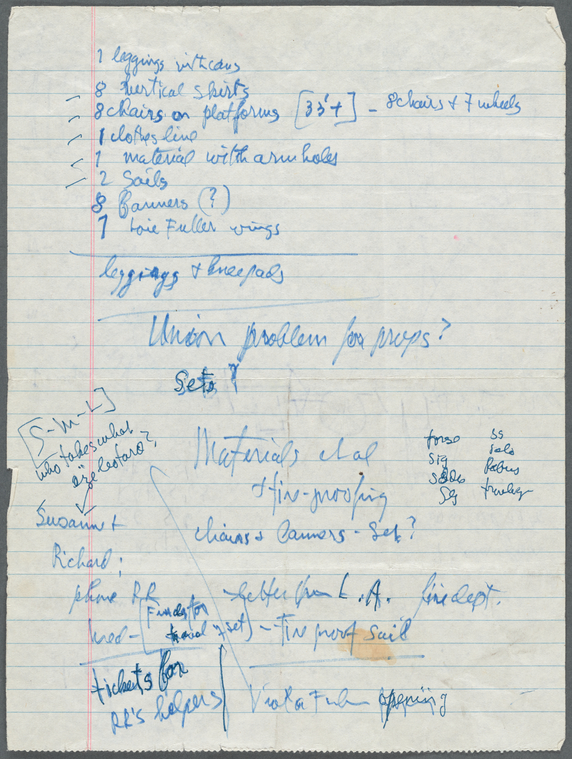 1 leggings with cans
8 vertical skirts
8 chairs on platforms [33'+] - 8 chairs + 7 wheels
1 clothes line
1 material with arm holes
2 Sails
8 Banners (?)
1 Loie Fuller wings
leggings + kneepads
Union problem for props?
Sets?
[S-M-L]
who takes what
size leotard?
Materials et al
+ fire-proofing
chairs + Banners - Set?
Susanne +
Richard;
phone RR - letter from L.A. fire dept.
[Funds for
travel + set] - Fire proof Sail
tickets for
RR's helpers
opening